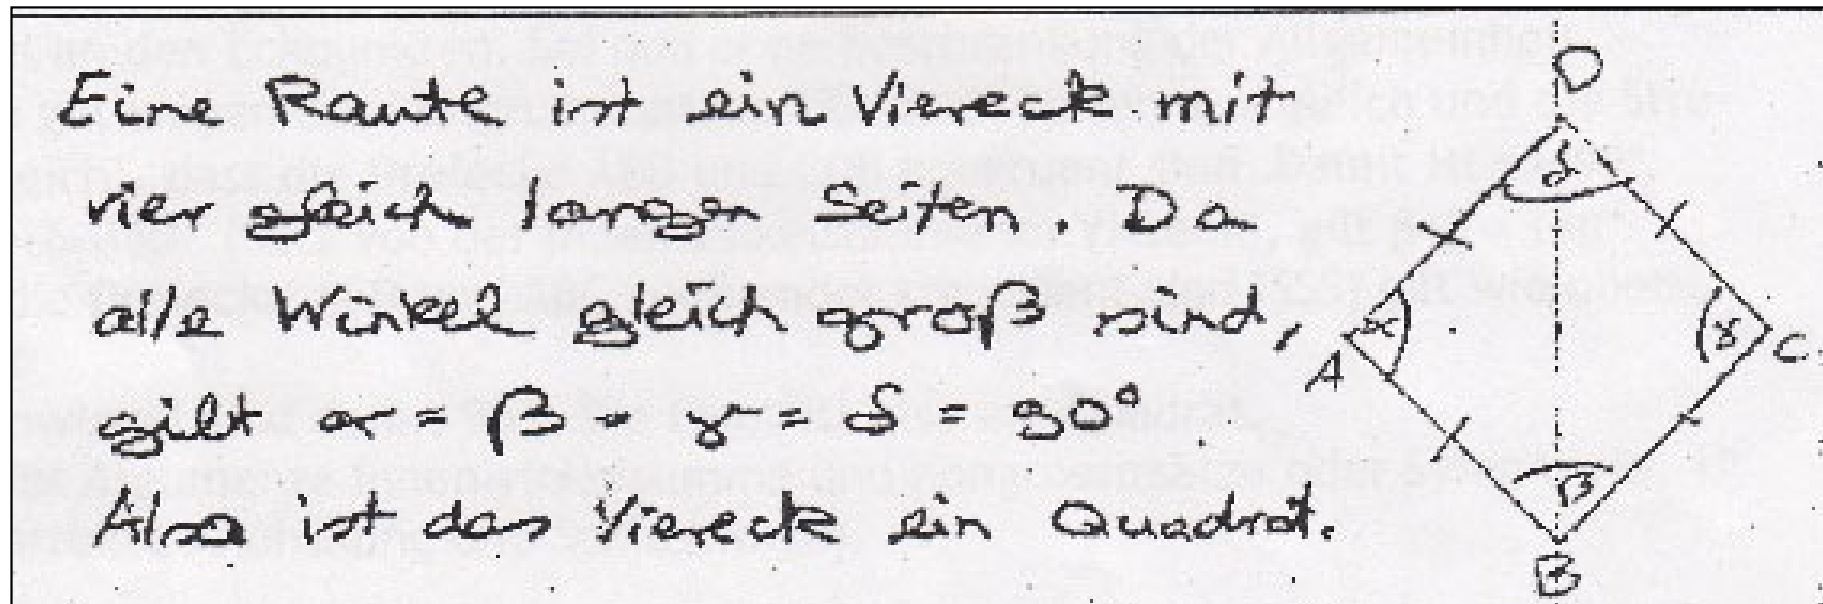 Eine Raute ist ein Viereck mit
vier gleich langen Seiten. Da
alle Winkel gleich groß sind,
gilt α = β = γ = δ = 90°
Also ist das Viereck ein Quadrat.
D
δ
α
γ
A
C
β
B